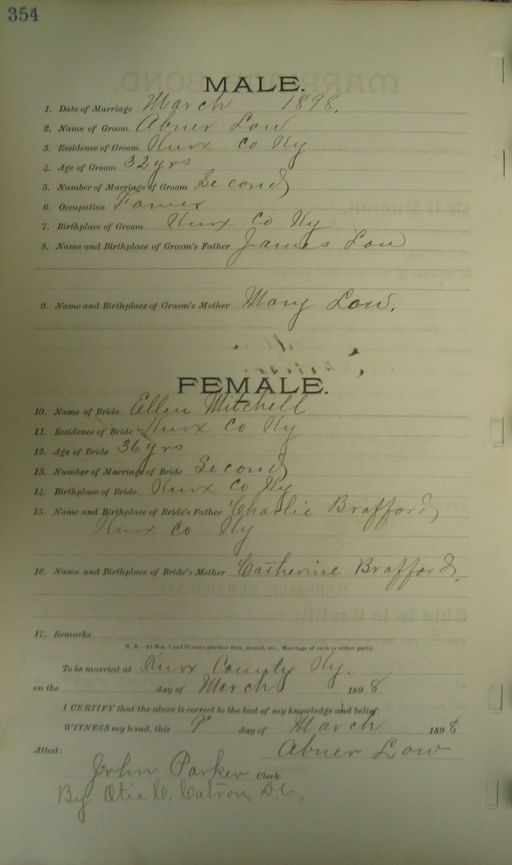 354
MALE.
1. Date of Marriage March 1898.
2. Name of Groom Abner Low
3. Residence of Groom Knox Co Ky
4. Age of Groom 32 yrs
5. Number of Marriage of Groom Second
6. Occupation Farmer
7. Birthplace of Groom Knox Co Ky
8. Name and Birthplace of Groom's Father James Low
9. Name and Birthplace of Groom's Mother Mary Low.
FEMALE.
10. Name of Bride Ellen Mitchell
11. Residence of Bride Knox Co Ky
12. Age of Bride 36 yrs
13. Number of Marriage of Bride Second
14. Birthplace of Bride Knox Co Ky
15. Name and Birthplace of Bride's Father Charlie Brafford
Knox Co Ky
16. Name and Birthplace of Bride's Mother Catherine Brafford,
17. Remarks
N. B.—At Nos. 5 and 13 state whether first, second, etc., Marriage of each or either party.
To be married at Knox County Ky.
on the day of March 1898
I CERTIFY that the above is correct to the best of my knowledge and belief.
WITNESS my hand, this 9" day of March 1898
Attest: Abner Low
John Parker Clerk
By Otis C. Catron, D.C.,